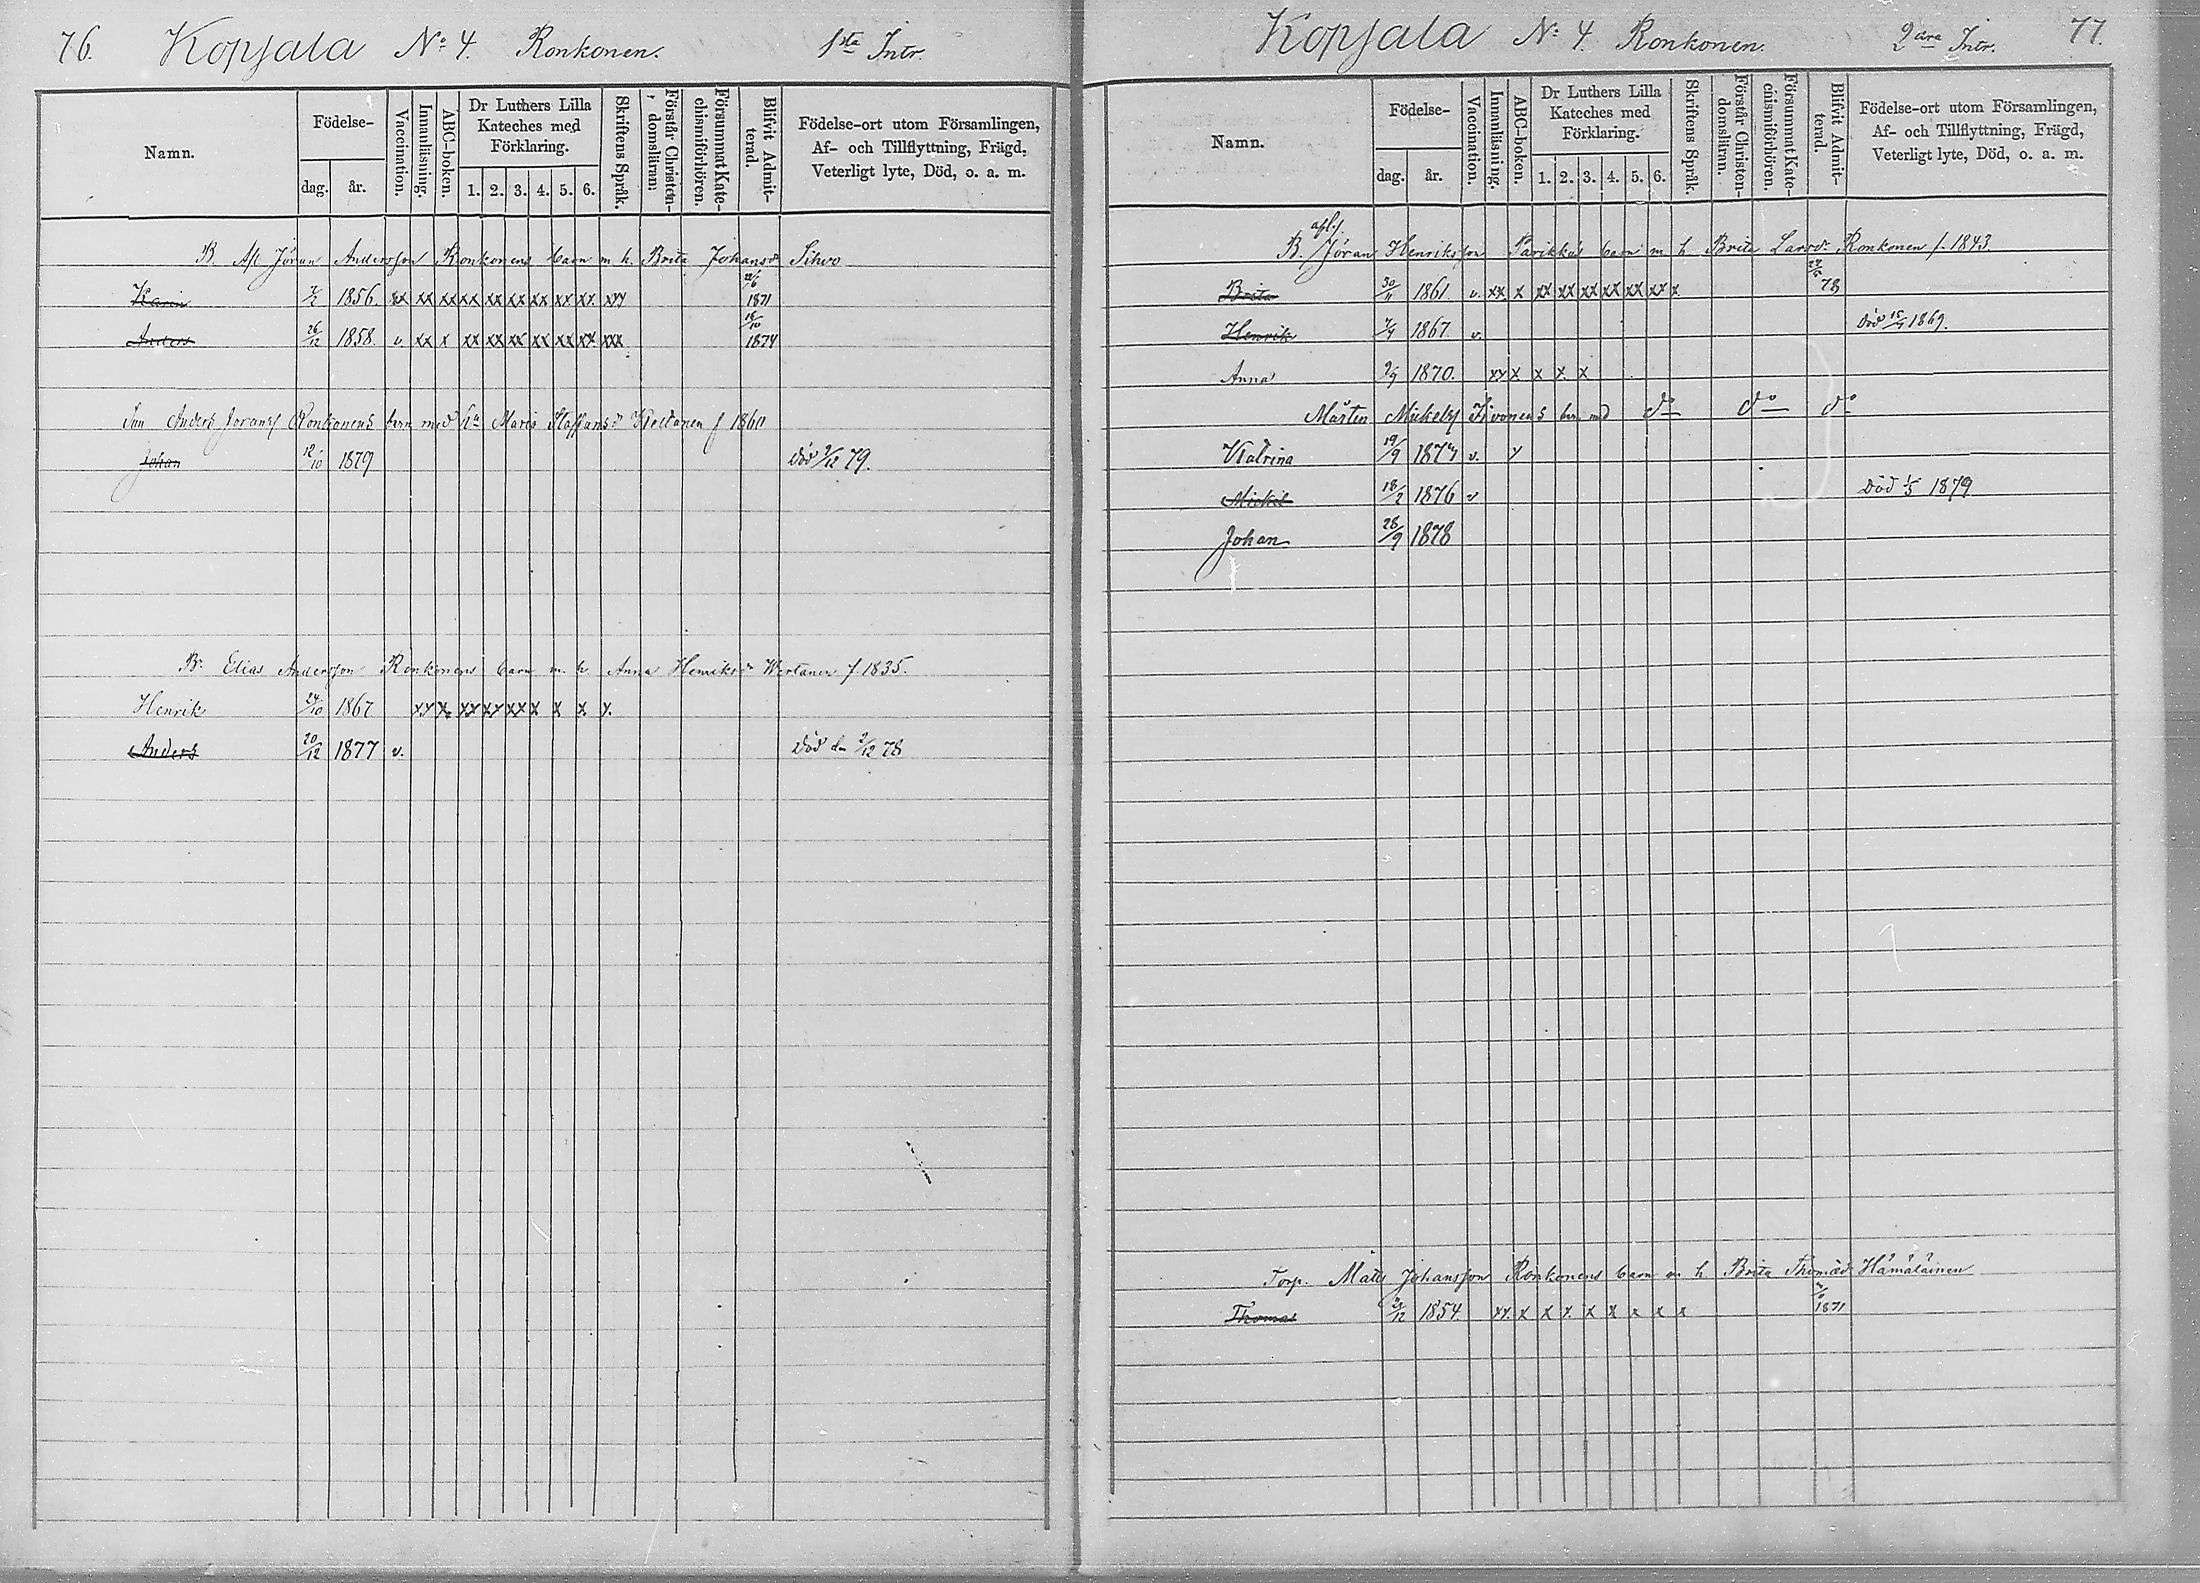 76. Kopsala No 4. Ronkonen. 1sta Intr.
Namn. Födelse- dag. år. Vaccination. Innanläsning. ABC-boken. Dr Luthers Lilla Kateches med Förklaring. 1. 2. 3. 4. 5. 6. Skriftens Språk. Förstår Christendomsläran. Försummat Katechismiförhören. Blifvit Admitterad. Födelse-ort utom Församlingen, Af- och Tillflyttning, Frägd, Veterligt lyte, Död, o. a. m.
B. Afl Jöran Andersson Ronkonens barn m. h. Brita Johansd Sihvo
Karin 1856. xx xx xx xx xx xx xx xx xx xxx 1871
Anders 26/12 1858. v xx x xx xx xx xx xx xx xxx 16/10 1874
Anders Joransf Ronkonens brn med Maria Staffansd f 1860
Johan 12/10 1879 död 79.
B. Elias Andersson Ronkonens barn m. h. Anna Henriksd Wertanen f. 1835.
Henrik 24/10 1867 xx x xx xx xx x x x x.
Anders 20/12 1877 v. död den 2/12 78
Kopsala No 4. Ronkonen. 2dra Intr. 77.
Namn. Födelse- dag. år. Vaccination. Innanläsning. ABC-boken. Dr Luthers Lilla Kateches med Förklaring. 1. 2. 3. 4. 5. 6. Skriftens Språk. Förstår Christendomsläran. Försummat Katechismiförhören. Blifvit Admitterad. Födelse-ort utom Församlingen, Af- och Tillflyttning, Frägd, Veterligt lyte, Död, o. a. m.
afl.
B. Jöran Henriksson Parikkas barn m h Brita Larsdr Ronkonen f. 1843
Brita 30/11 1861 v. xx x xx xx xx xx xx xx x 78
Henrik 1867. v. död 1869.
Anna 1870. xx x x x x
Mårten Mickelsf brn med do do do
Katrina 19/9 1874 v.
Mickel 18/2 1876 v Död 1/5 1879
Johan 28/9 1878
Torp. Mats Johansson Ronkonens barn m h Brita Thomæd Hämäläinen
Thomas 1854. xx. x x x. x x x x x 1871